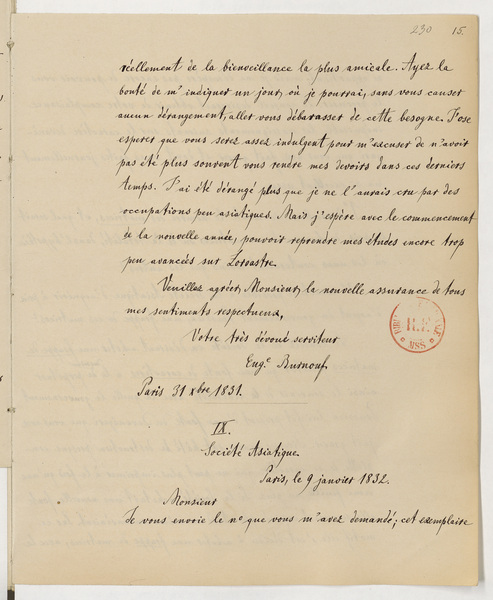 230 15.
réellement de la bienveillance la plus amicale. Ayez la
bonté de m'indiquer un jour, où je pourrai, sans vous causer
aucun dérangement, aller vous débarasser de cette besogne. J'ose
esperer que vous serez assez indulgent pour m'excuser de n'avoir
pas été plus souvent vous rendre mes devoirs dans ces derniers
temps. J'ai été dérangé plus que je ne l'aurais cru par des
occupations peu asiatiques. Mais j'espère avec le commencement
de la nouvelle année, pouvoir reprendre mes études encore trop
peu avancées sur Zoroastre.
Veuillez agréer, Monsieur, la nouvelle assurance de tous
mes sentiments respectueux,
Votre très dévoué serviteur
Eug.e Burnouf.
Paris 31 xbre 1831.
IX.
Société Asiatique.
Paris, le 9 janvier 1832.
Monsieur
Je vous envoie le n° que vous m'avez demandé; cet exemplaire
R.F.
MSS